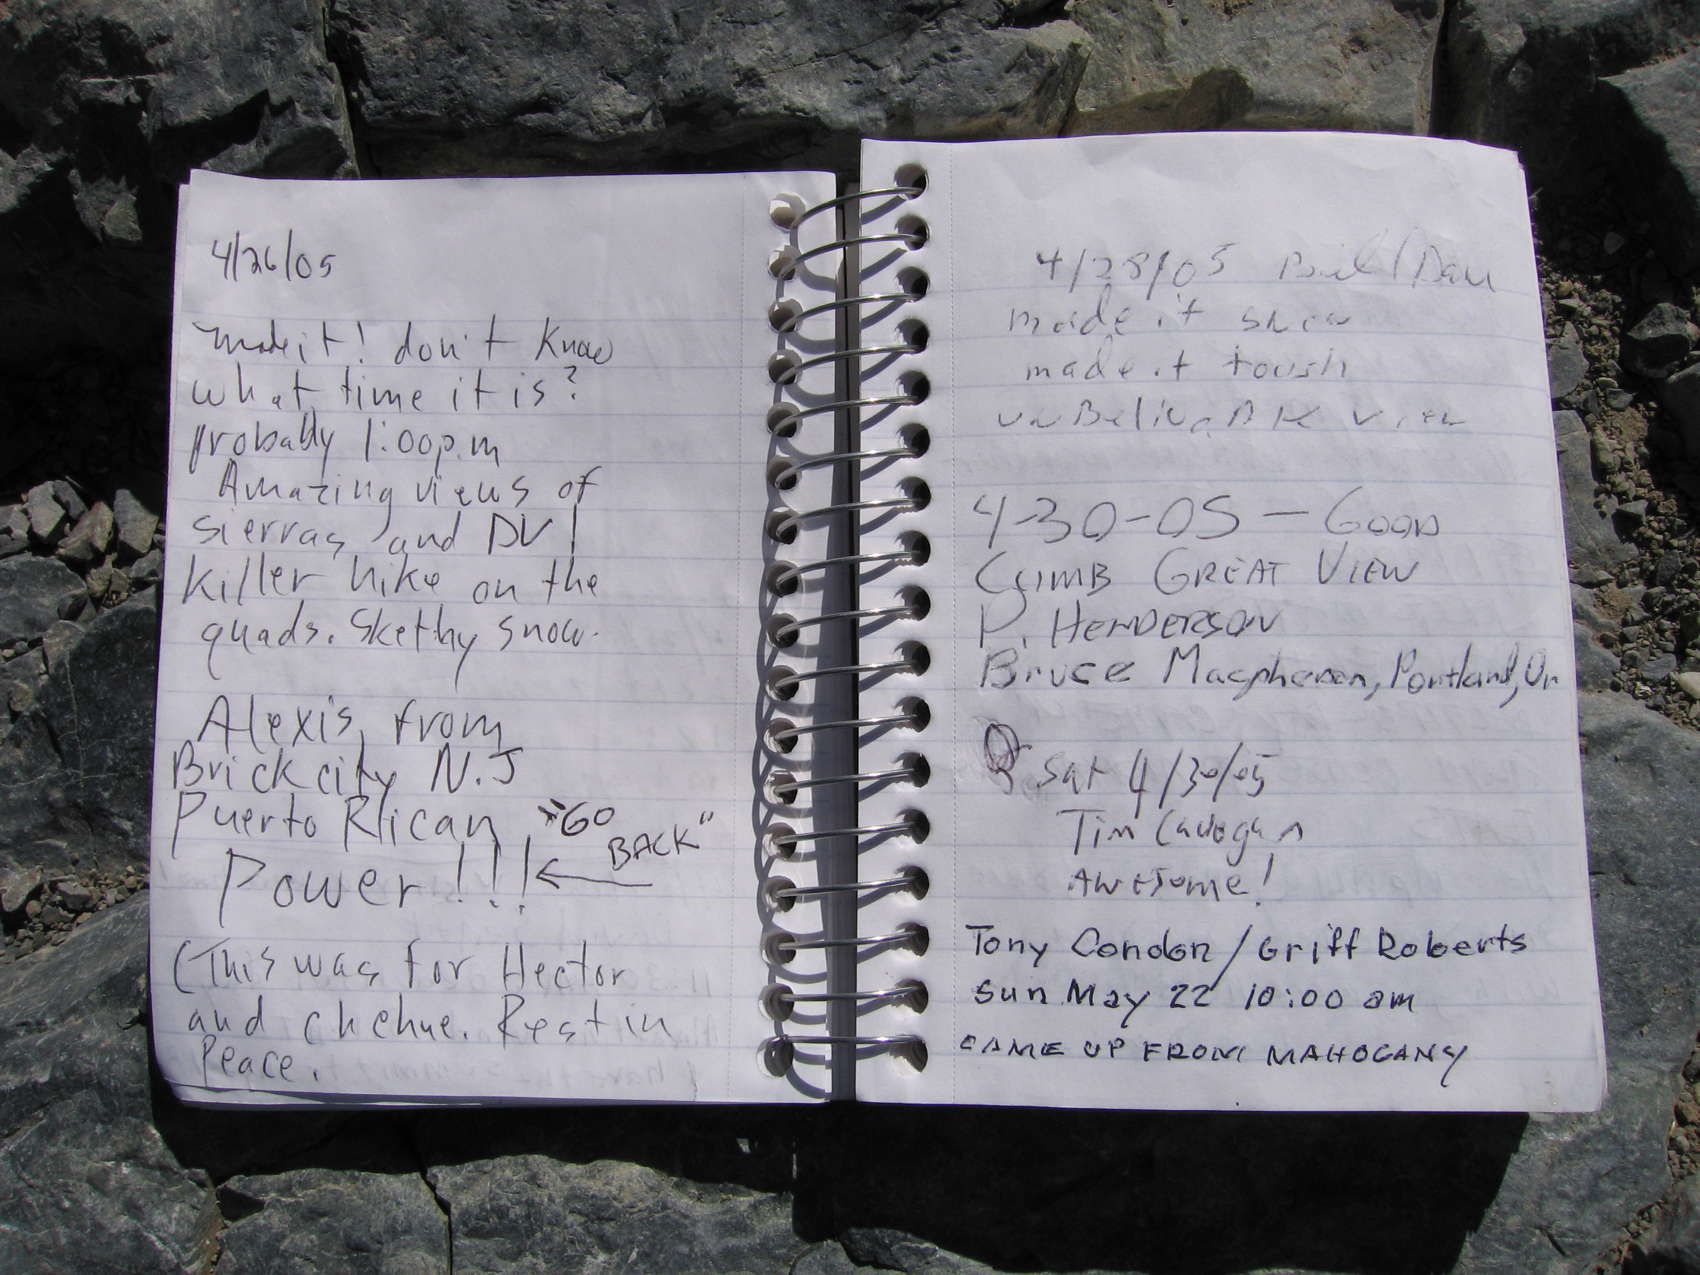 4/26/05
made it! don't know
what time it is?
probally 1:00p.m
Amazing views of
sierras and DV!
killer hike on the
quads. Skethy snow.
Alexis, from
Brick city N.J
Puerto Rican
"GO
BACK"
Power!!!
(This was for Hector
and chehue. Rest in
Peace.
4/28/05 /Dan
made it snow
made it tough
view
4-30-05 - GOOD
CLIMB GREAT VIEW
P. HENDERSON
Bruce Macpherson, Portland, Or
Sat 4/30/05
Tim
Awesome!
Tony Condon / Griff Roberts
Sun May 22 10:00 am
CAME UP FROM MAHOGANY